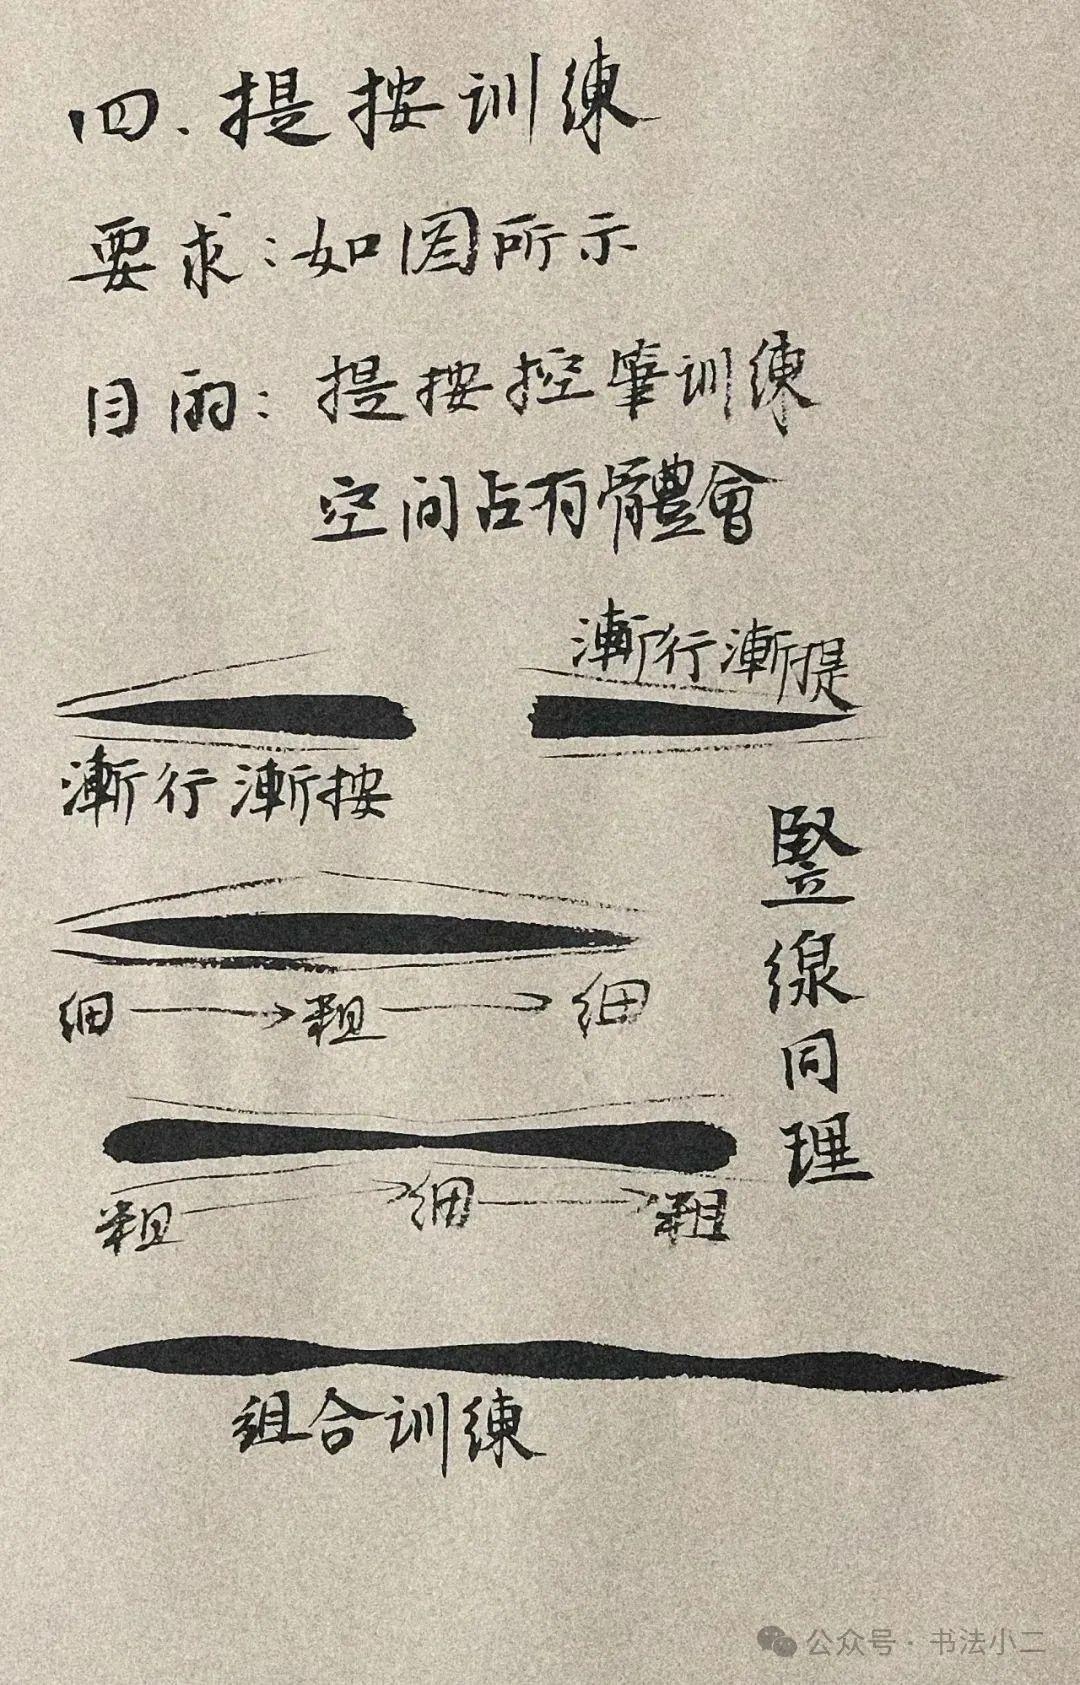 四.提按训練
要求:如图所示
目的:提按控筆训練
空间占有體會
漸行漸提
漸行漸按
豎線同理
细→粗→细
粗→细→粗
组合训練
公众号·书法小二